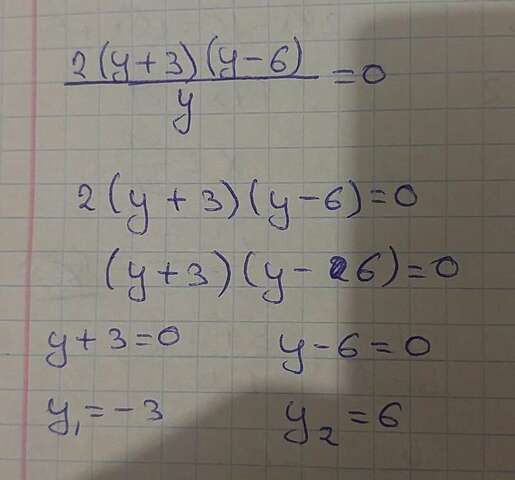 2(y+3)(y-6)
―――――― =0
y
2(y+3)(y-6)=0
(y+3)(y-6)=0
y+3=0 y-6=0
y₁=-3 y₂=6